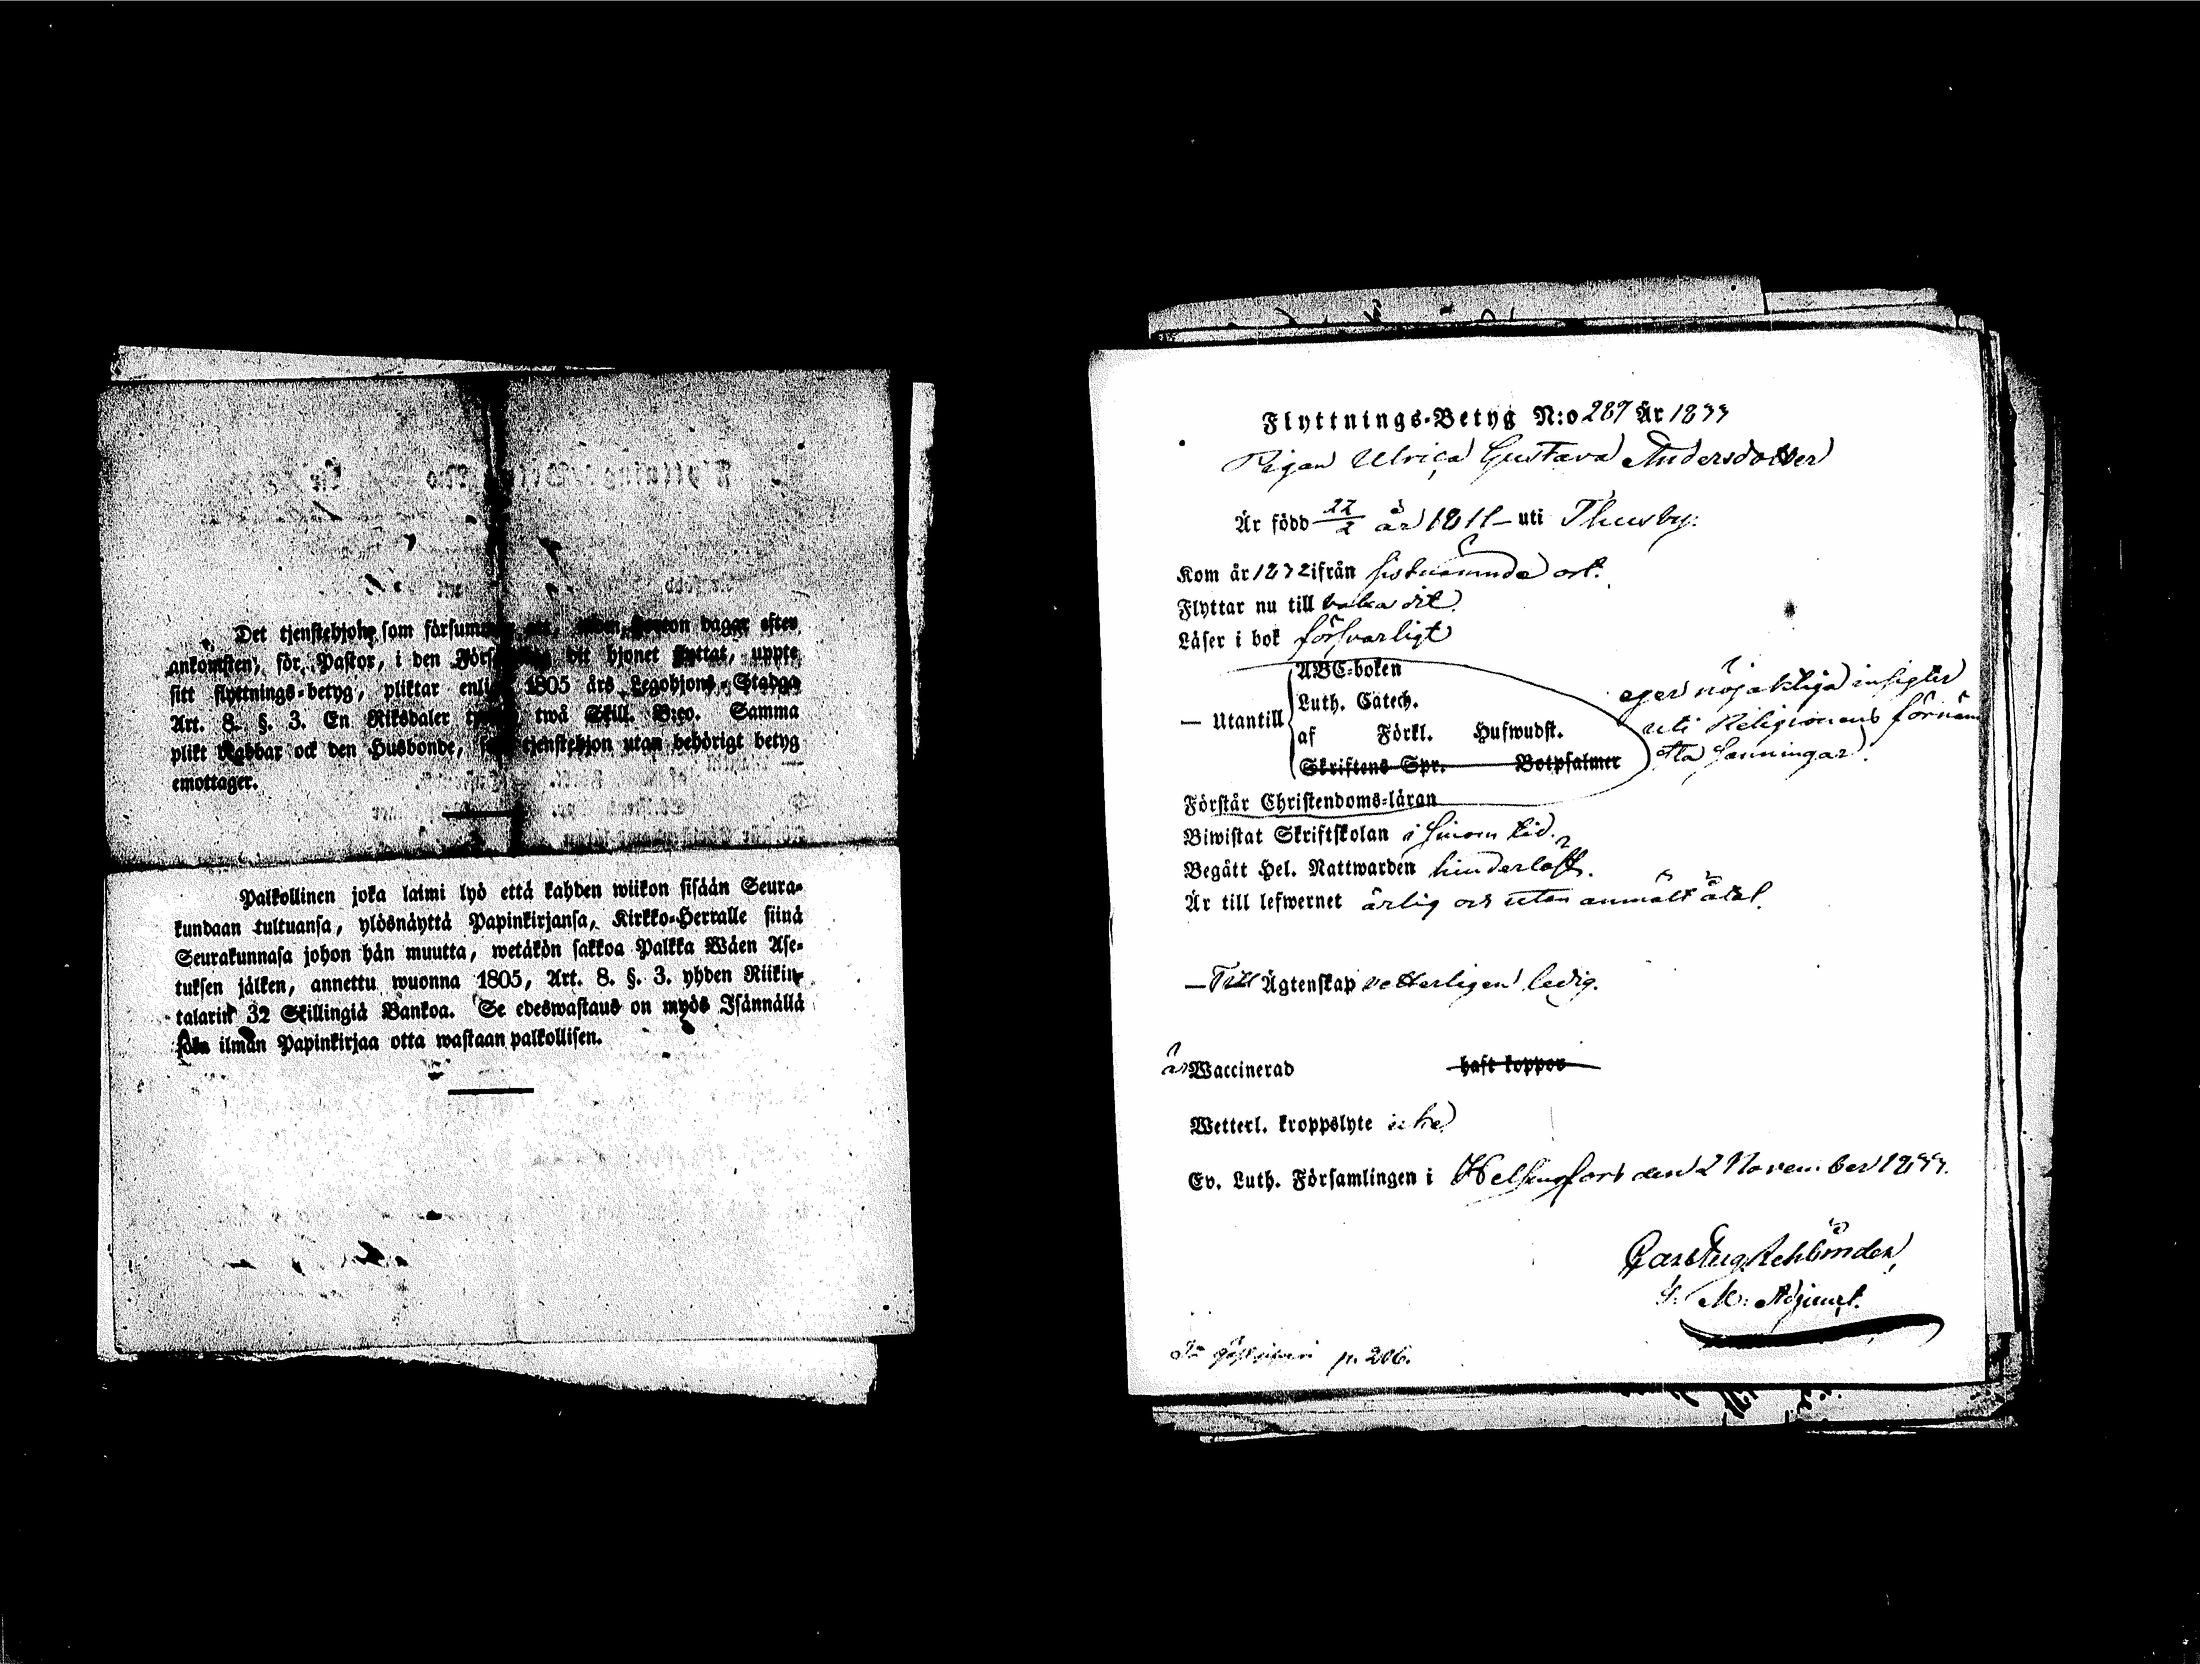 Det tjenstehjon, som försummar att, inom fjorton dagar efter
ankomsten, för Pastor, i den Församling dit hjonet flyttat, uppte
sitt flyttnings-betyg, pliktar enligt 1805 års Legohjons-Stadga
Art. 8. §. 3. En Riksdaler twå Skill. B:co. Samma
plikt drabbar ock den Husbonde, som tjenstehjon utan behörigt betyg
emottager.
Palkollinen joka laimi lyö että kahden wiikon sisään Seura-
kundaan tultuansa, ylösnäyttä Papinkirjansa, Kirkko-Herralle siinä
Seurakunnasa johon hän muutta, wetäkön sakkoa Palkka Wäen Ase-
tuksen jälken, annettu wuonna 1805, Art. 8. §. 3. yhden Riikin-
talarin 32 Skillingiä Bankoa. Se edeswastaus on myös Isännällä
joka ilman Papinkirjaa otta wastaan palkollisen.
Flyttnings-Betyg N:o 287 År 1833
Pigan Ulrica Gustava Andersdotter
Är född 22/2 år 1811 uti Thusby.
Kom år 1832 ifrån sistnämnde ort.
Flyttar nu till baka dit
Läser i bok försvarligt
ABC-boken
Luth. Catech.
— Utantill
af Förkl. Hufwudst.
Skriftens Spr. Botpsalmer
eger nöjaktiga insigter
uti Religionens förnäm
sta sanningar.
Förstår Christendoms-läran
Biwistat Skriftskolan i sinom tid.
Begått Hel. Nattwarden hinderlöst.
Är till lefwernet ärlig och utan anmält åtal.
— Till Ägtenskap vetterligen ledig.
är Waccinerad haft koppor
Wetterl. kroppslyte icke
Ev. Luth. Församlingen i Helsingfors den 2 November 1833.
Carl Aug.
Adjunct.
p. 206.